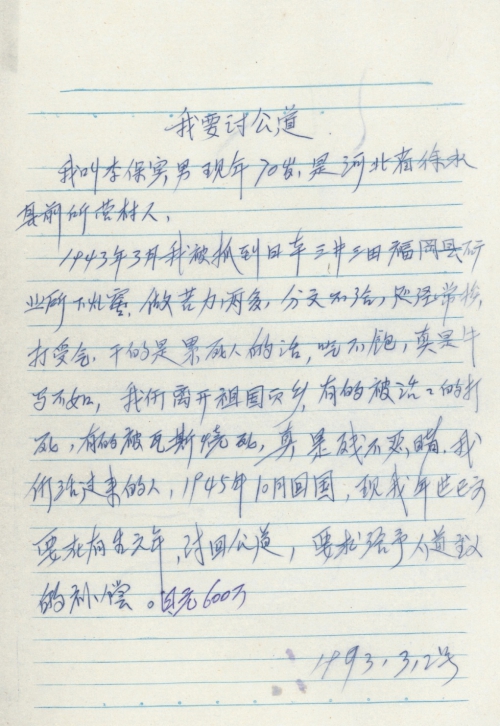 我要讨公道
我叫李保实,男 现年70岁,是河北省徐水
县前所营村人,
1943年3月我被抓到日本三井三田福岡县矿
业所下 做苦力,两年,分文不给,还经常挨
打受气 干的是累死人的活,吃不饱,真是牛
马不如,我们离开祖国 乡,有的被活々的打
死,有的被瓦斯烧死,真是 我
们活过来的人,1945年10月回国,现我年
要在有生之年,讨回公道,要求给予人道主义
的补偿。日元600万
1993.3,2号